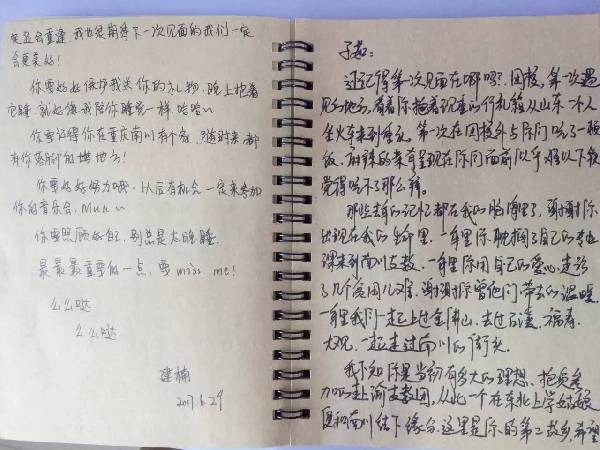 会重逢,我也很期待下一次见面的我们一定
会更美好!
你要好好保护我送你的礼物,晚上抱着
它睡就好像我陪你睡觉一样哈哈~
你要记得你在重庆南川有个家,随时来都
有你落脚的地方!
你要好好努力哦,以后有机会一定来参加
你的音乐会,Mua~
你要照顾好自己,别总是太晚睡
最最最重要的一点,要 miss me!
么么哒
么么哒
建楠
2017.6.29
子茹:
还记得第一次见面在哪吗?团校,第一次遇
见的地方,看着你拖着沉重的行礼箱从山东一个人
坐火车来到重庆,第一次在团校外与你们吃了一顿
饭,麻辣的菜肴呈现在你们面前似乎难以下饭
觉得吃不了那么辣。
那些去年的记忆都在我的脑海里了,谢谢你
出现在我的生命里。一年里你耽搁了自己的专业
课来到南川支教,一年里你用自己的爱心走访
了几个贫困儿童,谢谢你曾他们带去的温暖,
一年里我们一起上过金佛山,去过石溪、福寿、
大观,一起走过南川的街头。
我不知你是当初有多大的理想、抱负参
加的赴渝支教团,从此一个在东北上学姑娘
便和南川结下缘分,这里是你的第二故乡,希望